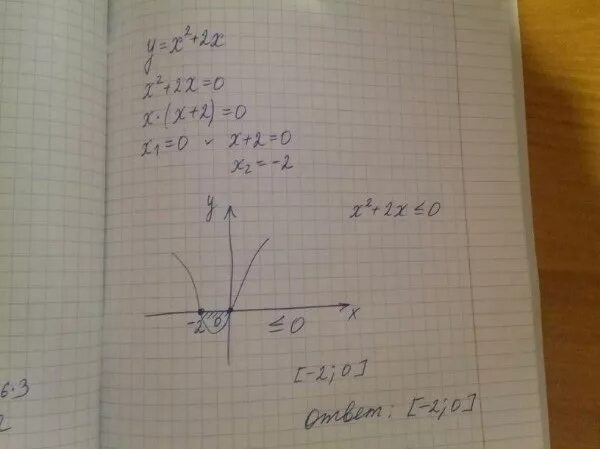 y=x²+2x
x²+2x=0
x·(x+2)=0
x₁=0 x+2=0
x₂=-2
y
x²+2x≤0
x
-2 0
≤0
[-2;0]
ответ: [-2;0]
6·3
2